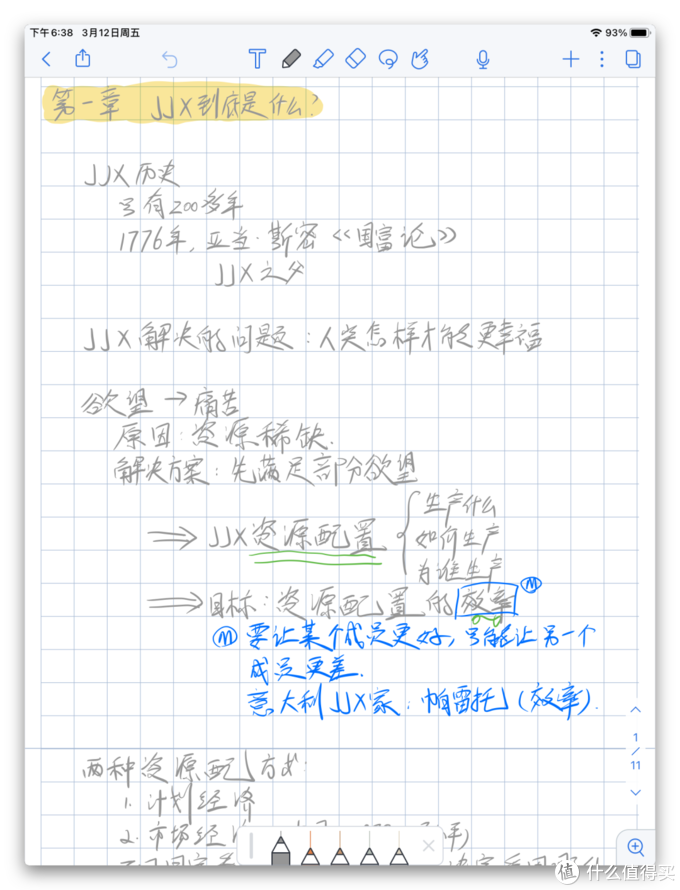 下午6:38 3月12日周五 93%
第一章 JJX到底是什么?
JJX历史
只有200多年
1776年,亚当·斯密《国富论》
JJX之父
JJX解决的问题:人类怎样才能更幸福
欲望→痛苦
原因:资源稀缺.
解决方案:先满足部分欲望
⇒JJX资源配置
生产什么
如何生产
为谁生产
⇒目标:资源配置的效率 M
M 要让某个成员更好,只能让另一个
成员更差.
意大利JJX家:帕雷托(效率).
1/11
两种资源配方式:
1.计划经济
2.市场经
什么值得买